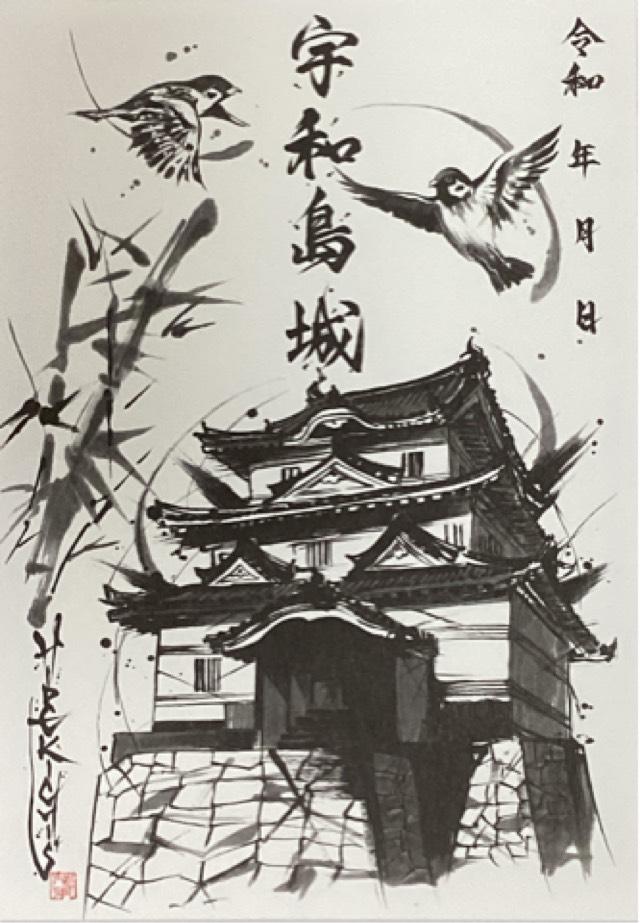 令和 年 月 日
宇和島城